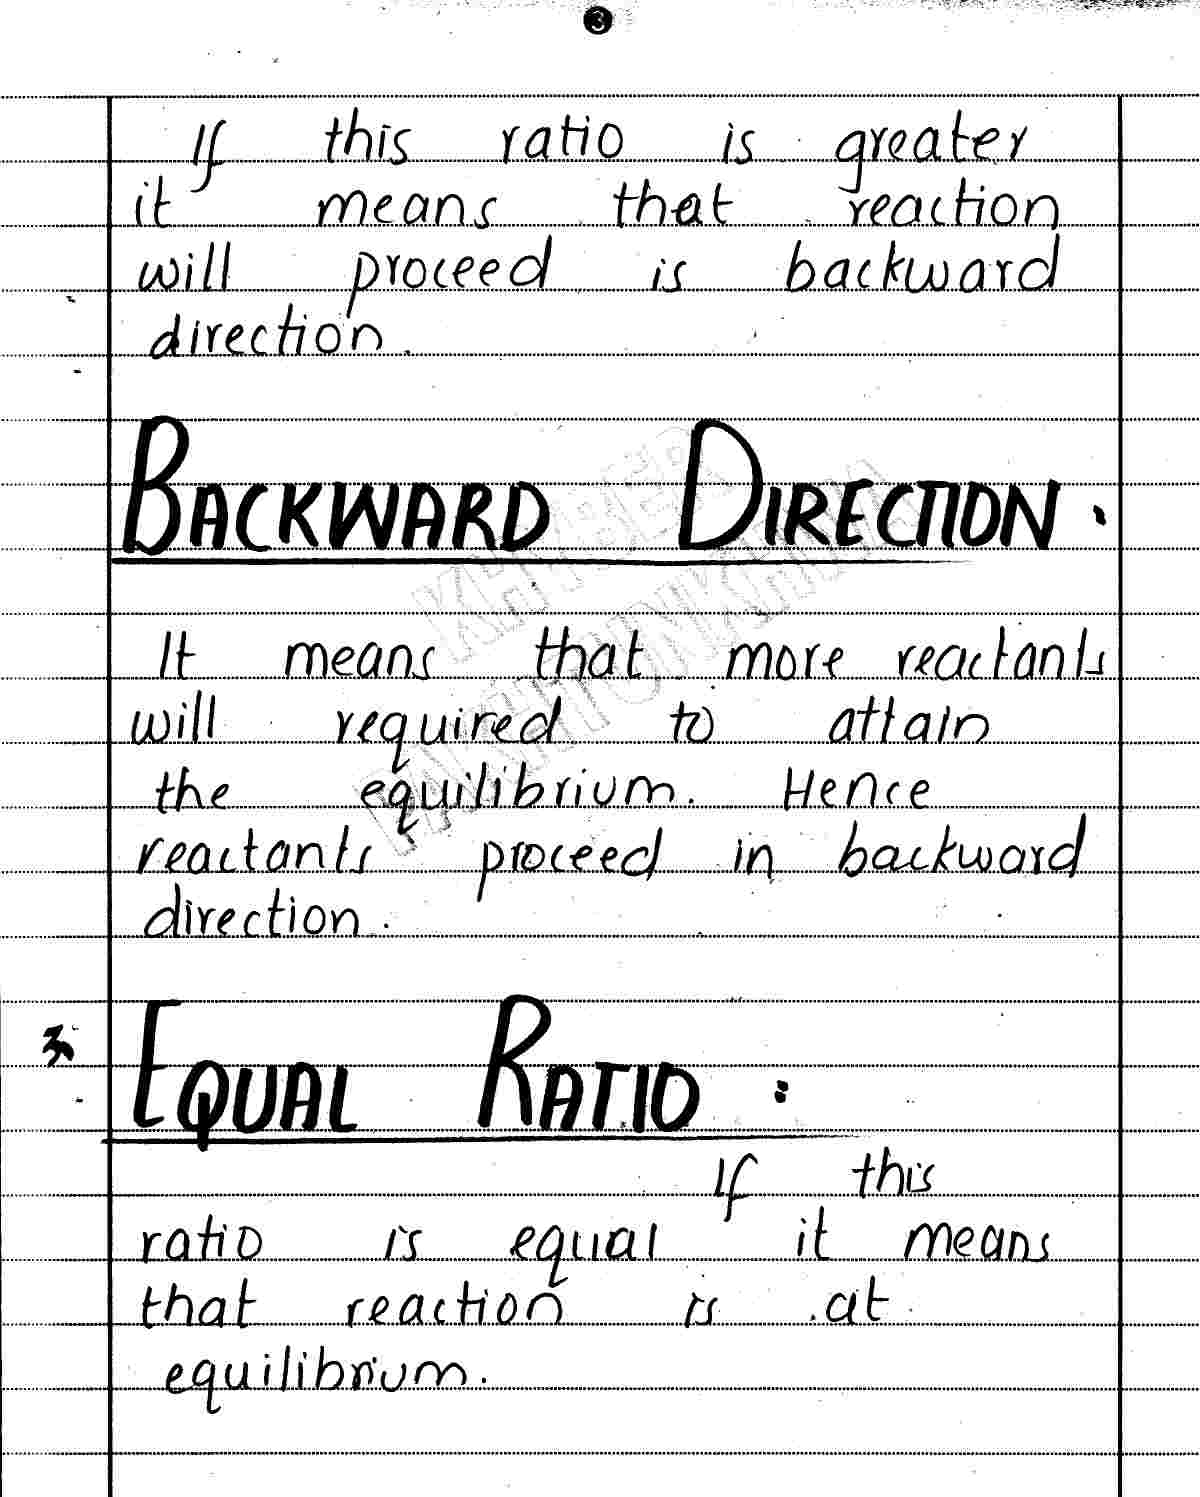 3
If this ratio is greater
it means that reaction
will proceed is backward
direction.
BACKWARD DIRECTION.
It means that more reactants
will required to attain
the equilibrium. Hence
reactants proceed in backward
direction.
3 EQUAL RATIO :
If this
ratio is equal it means
that reaction is at
equilibrium.
KHYBER
PAKHTUNKHWA